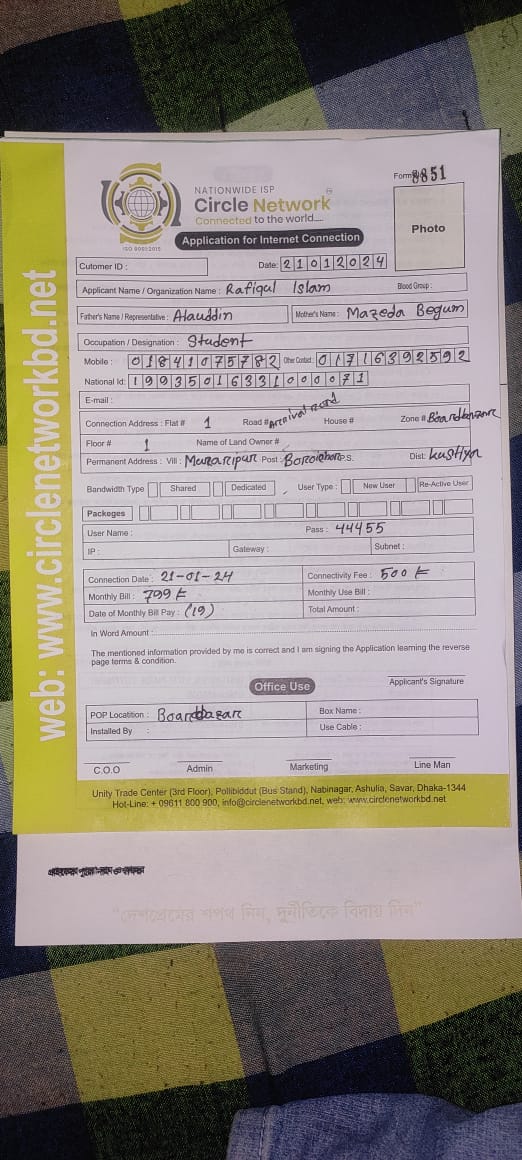 web: www.circlenetworkbd.net
Form 8851
NATIONWIDE ISP
Circle Network
Connected to the world....
ISO 9001:2015
Application for Internet Connection
Photo
Cutomer ID :
Date: 21012024
Applicant Name / Organization Name : Rafiqul Islam Blood Group :
Father's Name / Representative : Alauddin Mother's Name : Mazeda Begum
Occupation / Designation : Student
Mobile : 01841075782 Other Contact : 01716392592
National Id: 19935016331000071
E-mail :
Connection Address : Flat # 1 Road # House # Zone # Boardbazar
Floor # 1 Name of Land Owner #
Permanent Address : Vill : Post : P.S. Dist: Kustiya
Bandwidth Type Shared Dedicated User Type : New User Re-Active User
Packeges
User Name : Pass : 44455
IP : Gateway : Subnet :
Connection Date : 21-01-24 Connectivity Fee : 500 t
Monthly Bill : 799 t Monthly Use Bill :
Date of Monthly Bill Pay : (19) Total Amount :
In Word Amount :
The mentioned information provided by me is correct and I am signing the Application learning the reverse
page terms & condition.
Office Use
Applicant's Signature
POP Locatition : Boardbazar Box Name :
Installed By : Use Cable :
C.O.O Admin Marketing Line Man
Unity Trade Center (3rd Floor), Pollibiddut (Bus Stand), Nabinagar, Ashulia, Savar, Dhaka-1344
Hot-Line: + 09611 800 900, info@circlenetworkbd.net, web: www.circlenetworkbd.net
"দেশপ্রেমের শপথ নিন, দুর্নীতিকে বিদায় দিন"